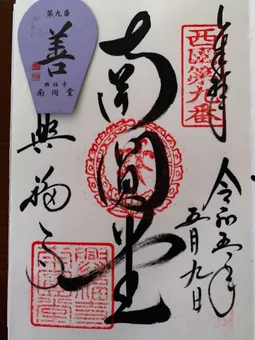 奉拝
西國第九番
令和五年
五月九日
南圓堂
興福寺
第九番
善
興福寺
南円堂